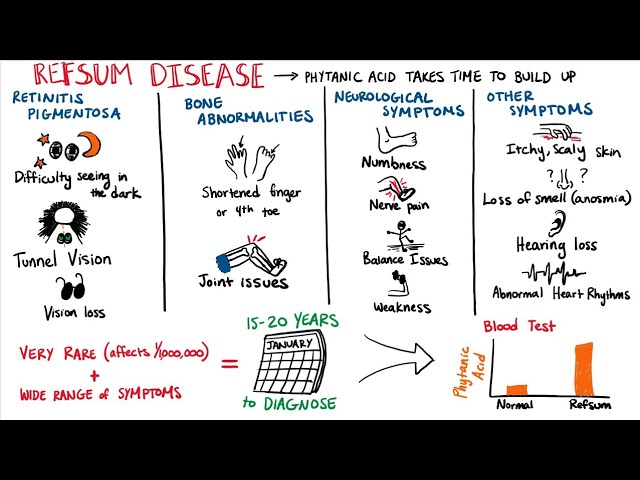 REFSUM DISEASE → PHYTANIC ACID TAKES TIME TO BUILD UP
RETINITIS
PIGMENTOSA
Difficulty seeing in
the dark
Tunnel Vision
Vision loss
BONE
ABNORMALITIES
Shortened finger
or 4th toe
Joint issues
NEUROLOGICAL
SYMPTOMS
Numbness
Nerve pain
Balance Issues
Weakness
OTHER
SYMPTOMS
Itchy, Scaly skin
? ?
Loss of smell (anosmia)
Hearing loss
Abnormal Heart Rhythms
VERY RARE (affects 1/1,000,000)
+
WIDE RANGE of SYMPTOMS
=
15-20 YEARS
JANUARY
to DIAGNOSE
Blood Test
Phytanic
Acid
Normal Refsum